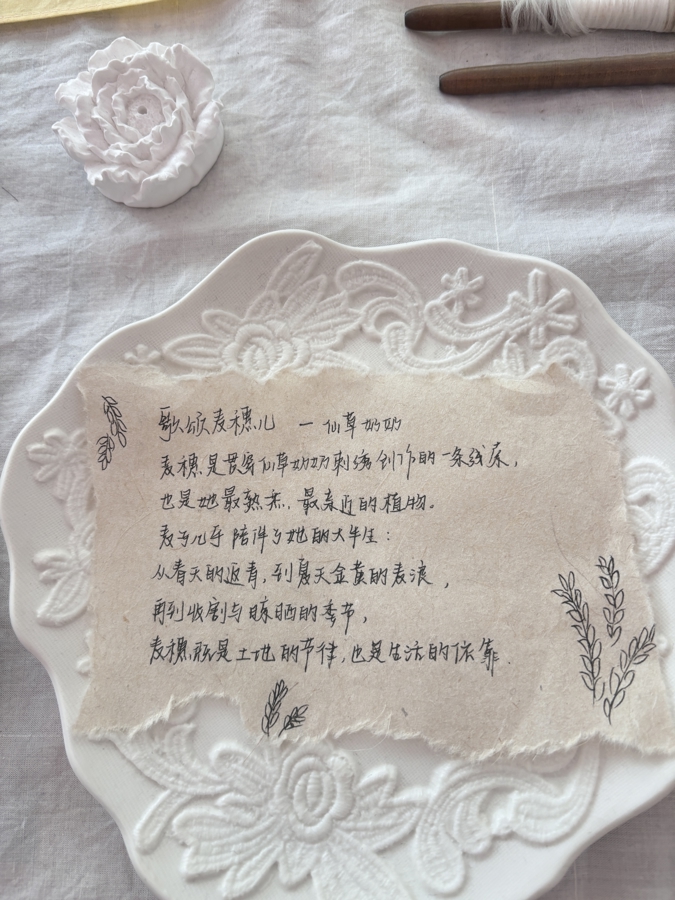 歌颂麦穗儿 — 仙草奶奶
麦穗是贯穿仙草奶奶刺绣创作的一条线索，
也是她最熟悉、最亲近的植物。
麦子几乎陪伴了她的大半生：
从春天的返青，到夏天金黄的麦浪，
再到收割与晾晒的季节，
麦穗既是土地的节律，也是生活的依靠.